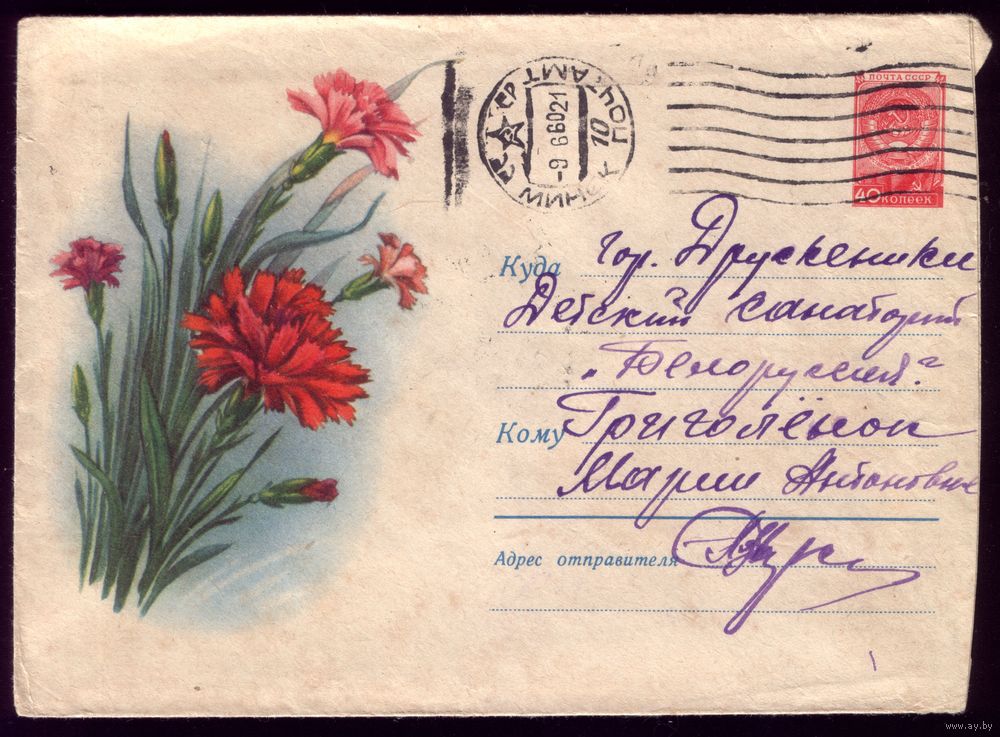 ПОЧТА СССР
40 КОПЕЕК
МИНСК ПОЧТАМТ
-9 6 6021
10
Куда гор. Друскеники
Детский санаторий
„Белорусский"
Кому Григолёнок
Марии Антоновне
Адрес отправителя
www.ay.by